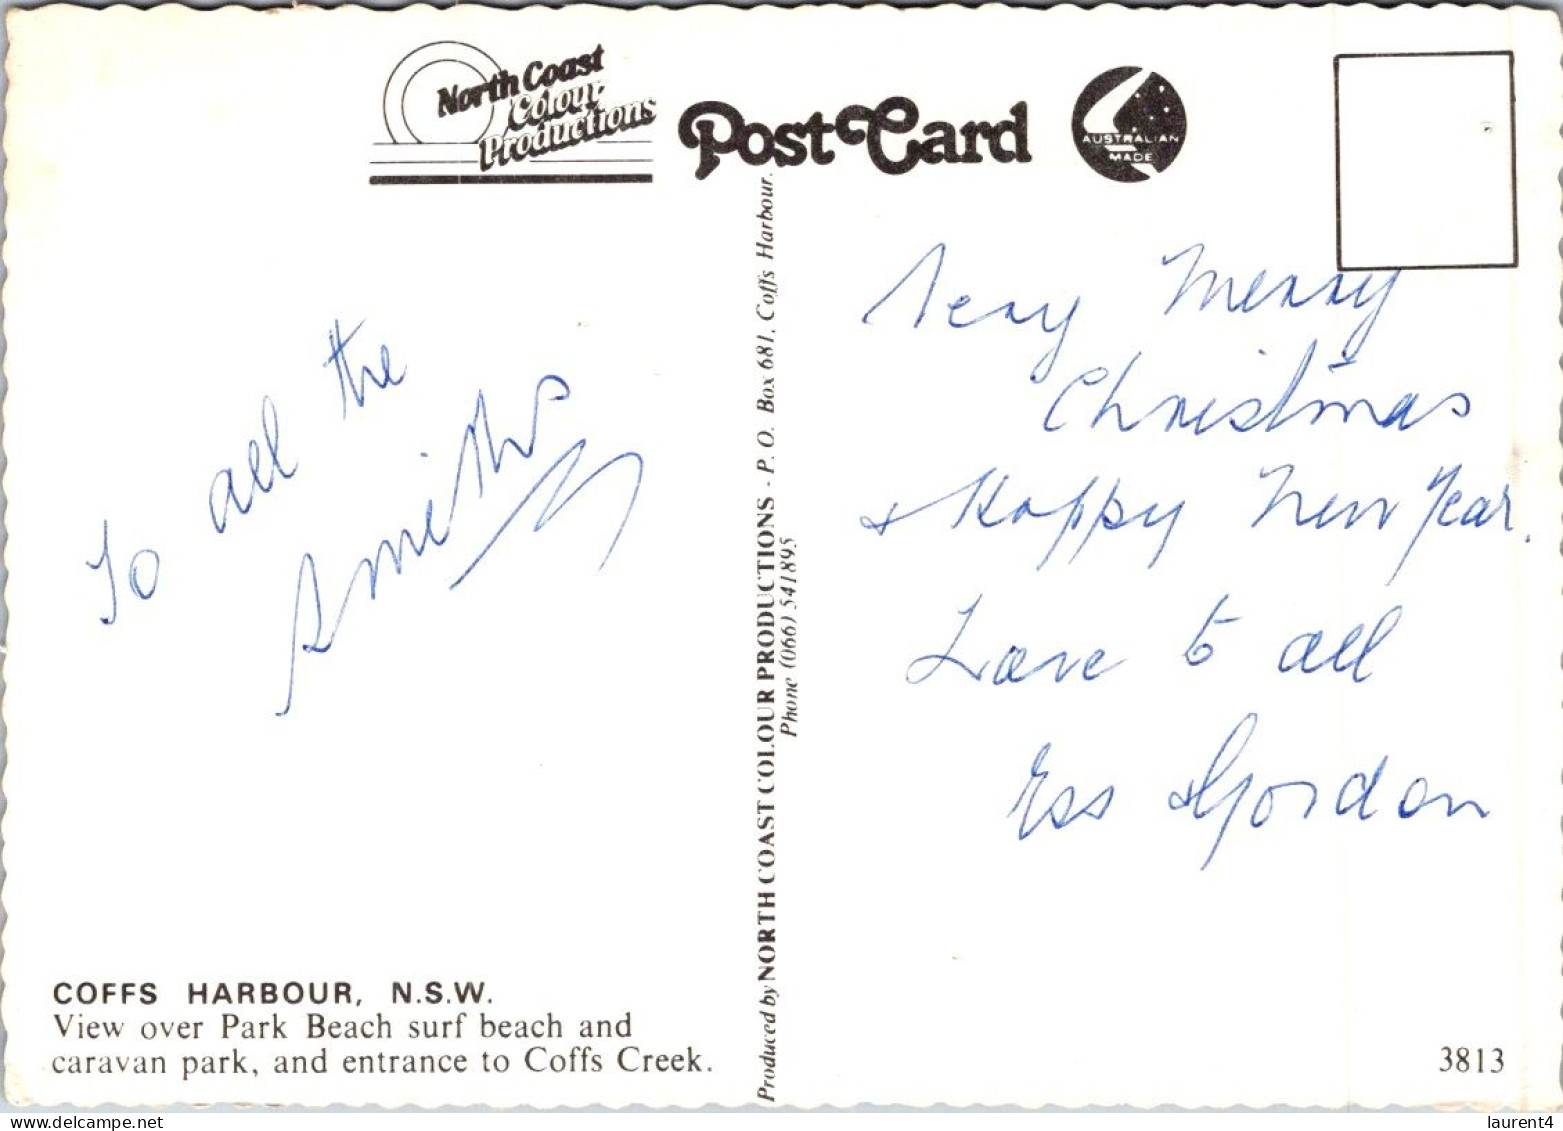 North Coast
Colour
Productions
PostCard
AUSTRALIAN
MADE
To all the
Smiths
Very Merry
Christmas
& Happy New Year.
Love to all
Ess & Gordon
Produced by NORTH COAST COLOUR PRODUCTIONS - P.O. Box 681, Coffs Harbour.
Phone (066) 541895
COFFS HARBOUR, N.S.W.
View over Park Beach surf beach and
caravan park, and entrance to Coffs Creek.
3813
laurent4